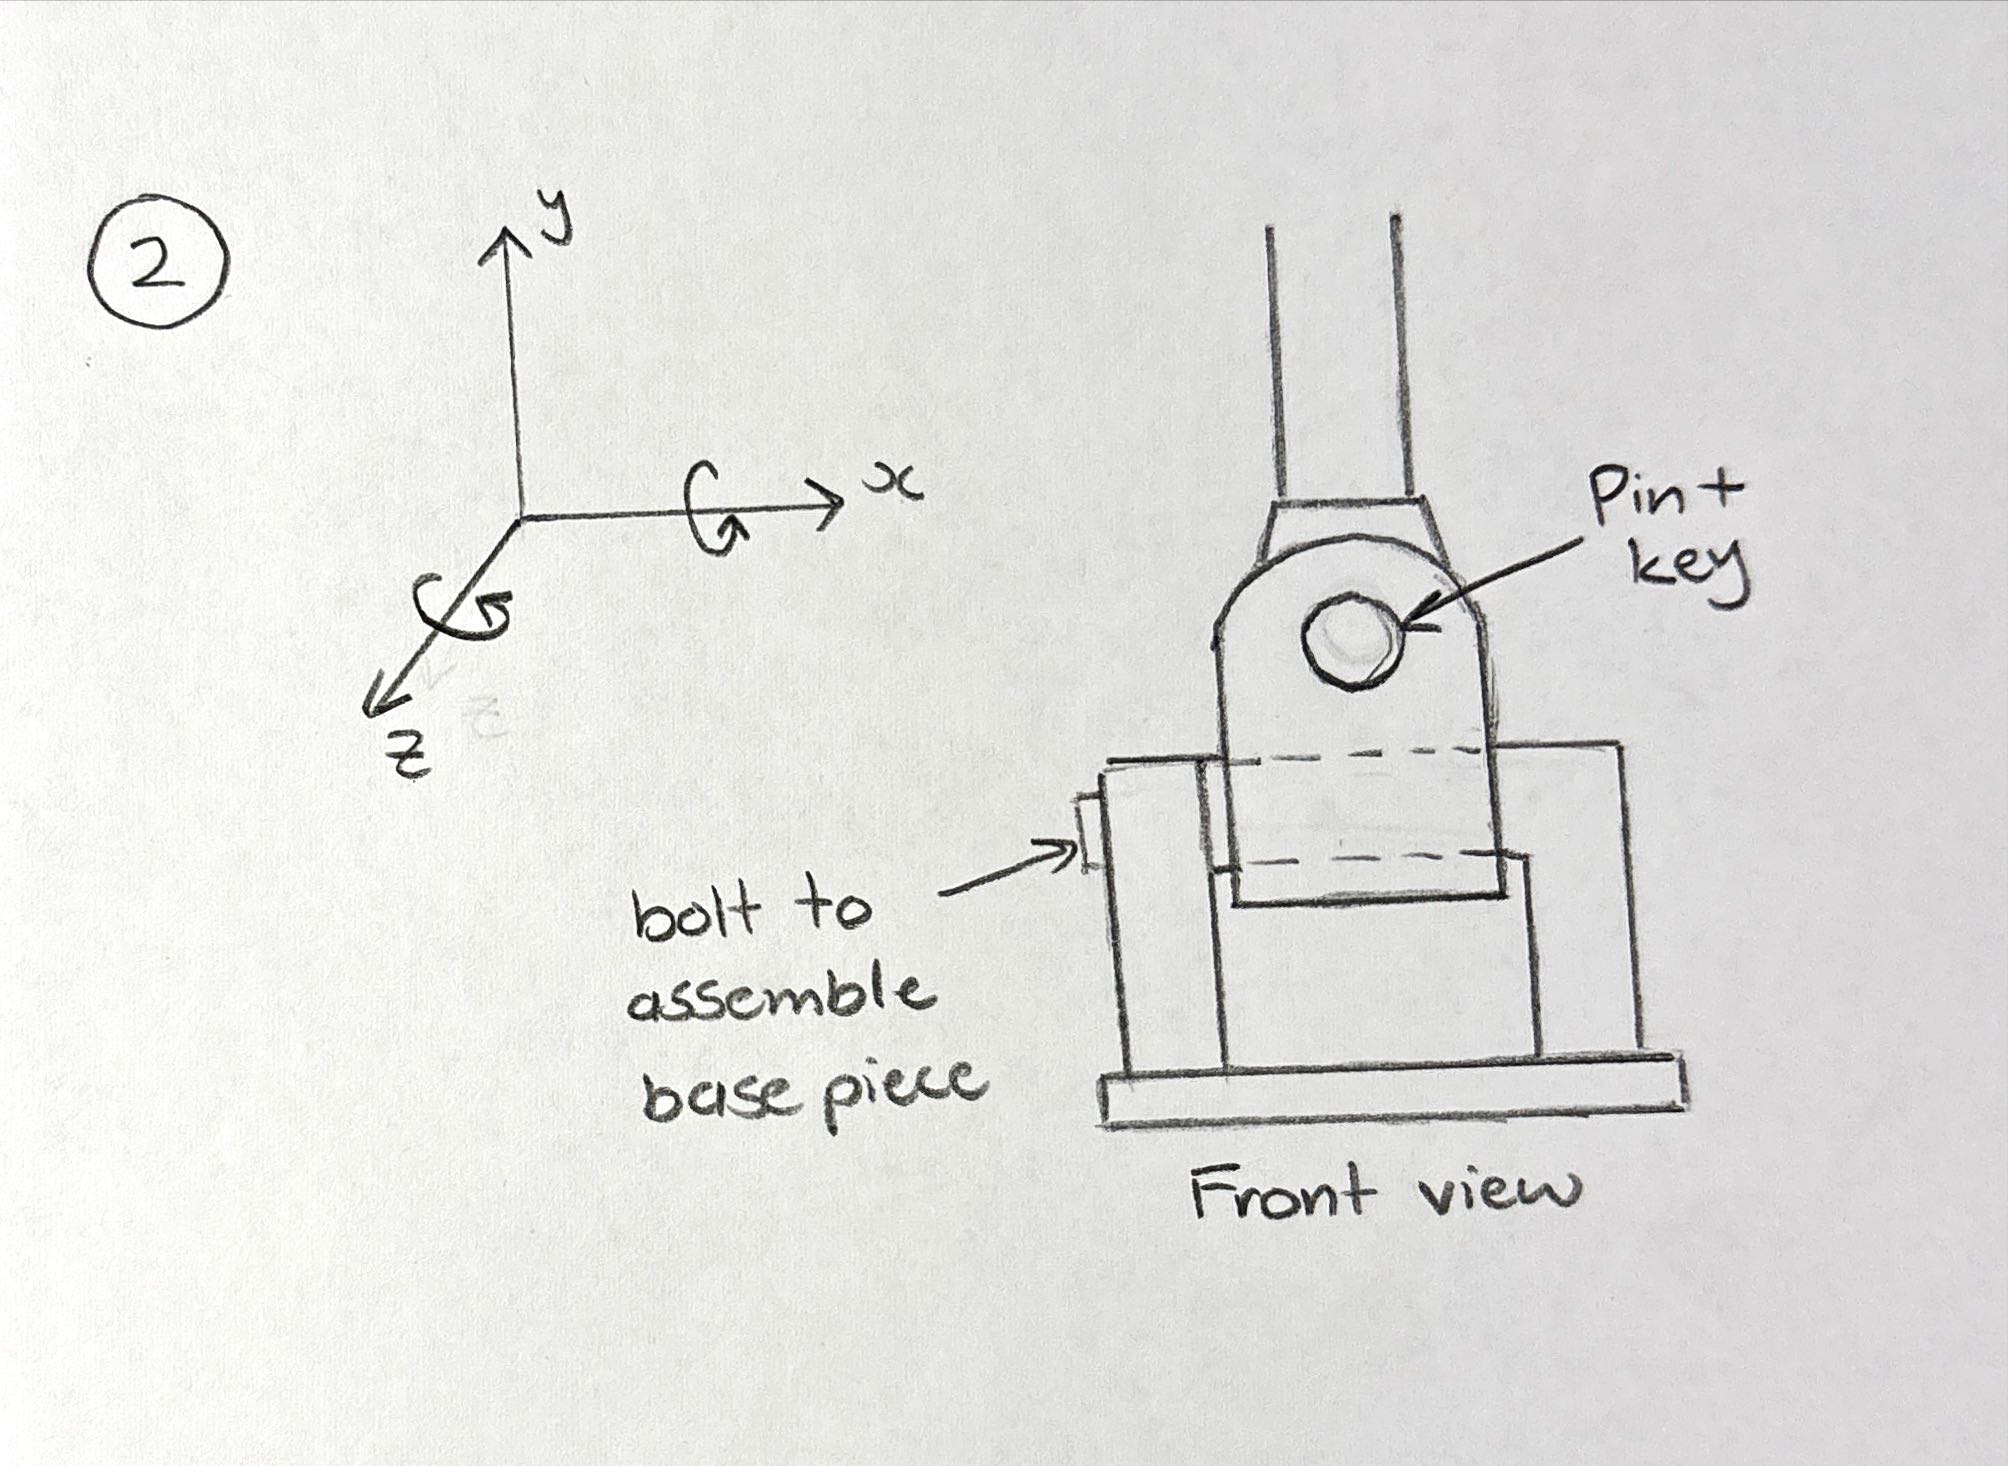 2
y
x
z
Pin +
key
bolt to
assemble
base piece
Front view